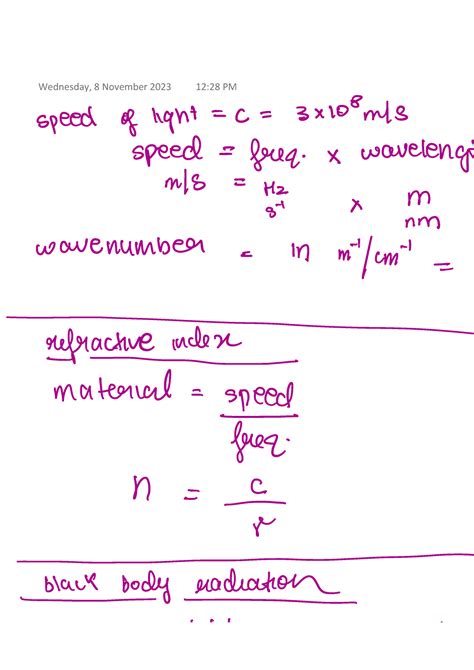 Wednesday, 8 November 2023 12:28 PM
speed of light = c = 3×10⁸ m/s
speed = freq. × waveleng
m/s = Hz × m
s⁻¹ nm
wavenumber = in m⁻¹/cm⁻¹ =
refractive index
material = speed/freq.
n = c/r
black body radiation